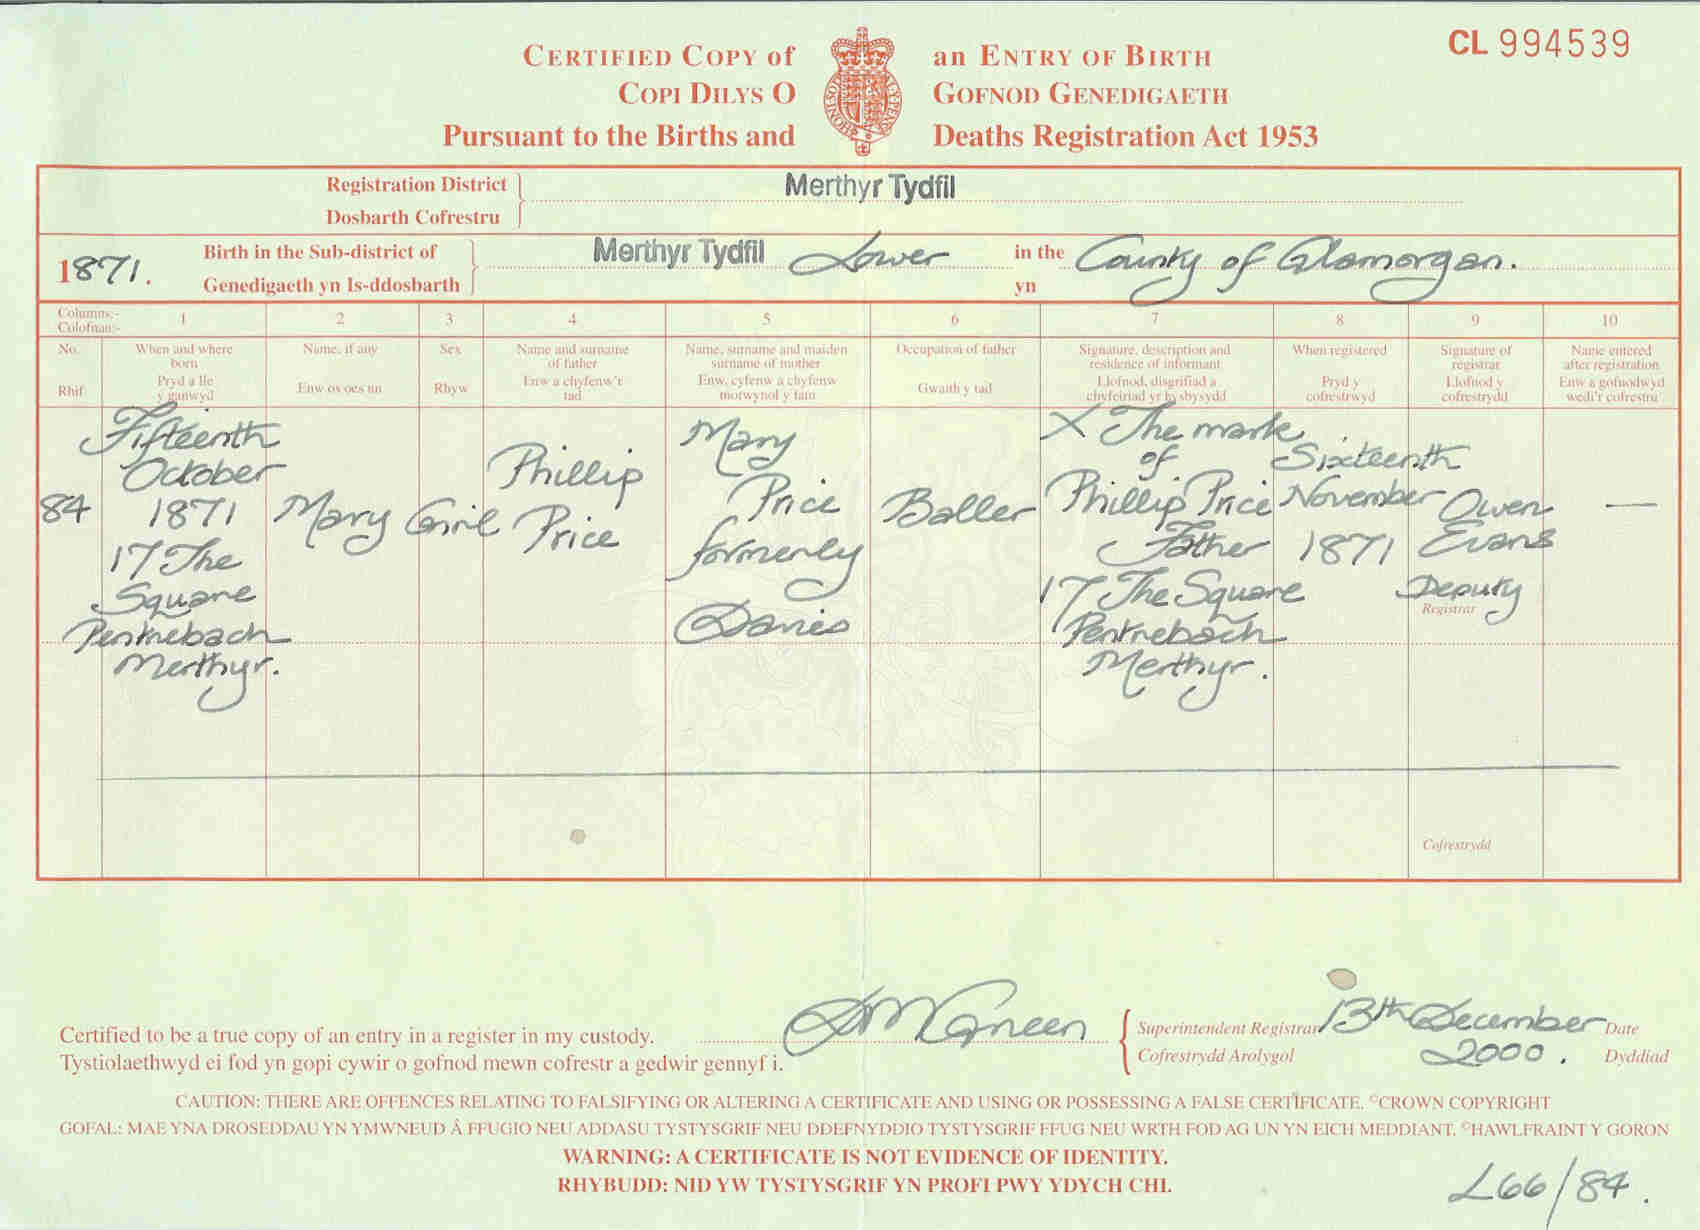 CERTIFIED COPY of an ENTRY OF BIRTH
COPI DILYS O GOFNOD GENEDIGAETH
Pursuant to the Births and Deaths Registration Act 1953
CL 994539
Registration District Merthyr Tydfil
Dosbarth Cofrestru
1871. Birth in the Sub-district of Merthyr Tydfil Lower in the County of Glamorgan.
Genedigaeth yn Is-ddosbarth yn
Columns:- 1 2 3 4 5 6 7 8 9 10
Colofnau:-
No.
Rhif
When and where
born
Pryd a lle
y ganwyd
Name, if any
Enw os oes un
Sex
Rhyw
Name and surname
of father
Enw a chyfenw'r
tad
Name, surname and maiden
surname of mother
Enw, cyfenw a chyfenw
morwynol y fam
Occupation of father
Gwaith y tad
Signature, description and
residence of informant
Llofnod, disgrifiad a
chyfeiriad yr hysbysydd
When registered
Pryd y
cofrestrwyd
Signature of
registrar
Llofnod y
cofrestrydd
Name entered
after registration
Enw a gofnodwyd
wedi'r cofrestru
84
Fifteenth
October
1871
17 The
Square
Pentrebach
Merthyr.
Mary
Girl
Phillip
Price
Mary
Price
formerly
Davies
Baller
X The mark
of
Phillip Price
Father
17 The Square
Pentrebach
Merthyr.
Sixteenth
November
1871
Owen
Evans
Deputy
Registrar
—
Cofrestrydd
Certified to be a true copy of an entry in a register in my custody.
Tystiolaethwyd ei fod yn gopi cywir o gofnod mewn cofrestr a gedwir gennyf i.
Green
Superintendent Registrar
Cofrestrydd Arolygol
13th December
2000.
Date
Dyddiad
CAUTION: THERE ARE OFFENCES RELATING TO FALSIFYING OR ALTERING A CERTIFICATE AND USING OR POSSESSING A FALSE CERTIFICATE. ©CROWN COPYRIGHT
GOFAL: MAE YNA DROSEDDAU YN YMWNEUD Â FFUGIO NEU ADDASU TYSTYSGRIF NEU DDEFNYDDIO TYSTYSGRIF FFUG NEU WRTH FOD AG UN YN EICH MEDDIANT. ©HAWLFRAINT Y GORON
WARNING: A CERTIFICATE IS NOT EVIDENCE OF IDENTITY.
RHYBUDD: NID YW TYSTYSGRIF YN PROFI PWY YDYCH CHI.
L66/84.